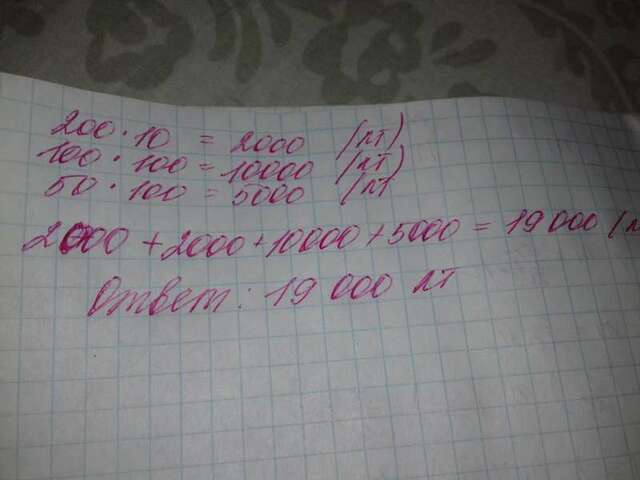 200 · 10 = 2000 (кг)
100 · 100 = 10000 (кг)
50 · 100 = 5000
2000 + 2000 + 10000 + 5000 = 19 000 (к
Ответ: 19 000 кг